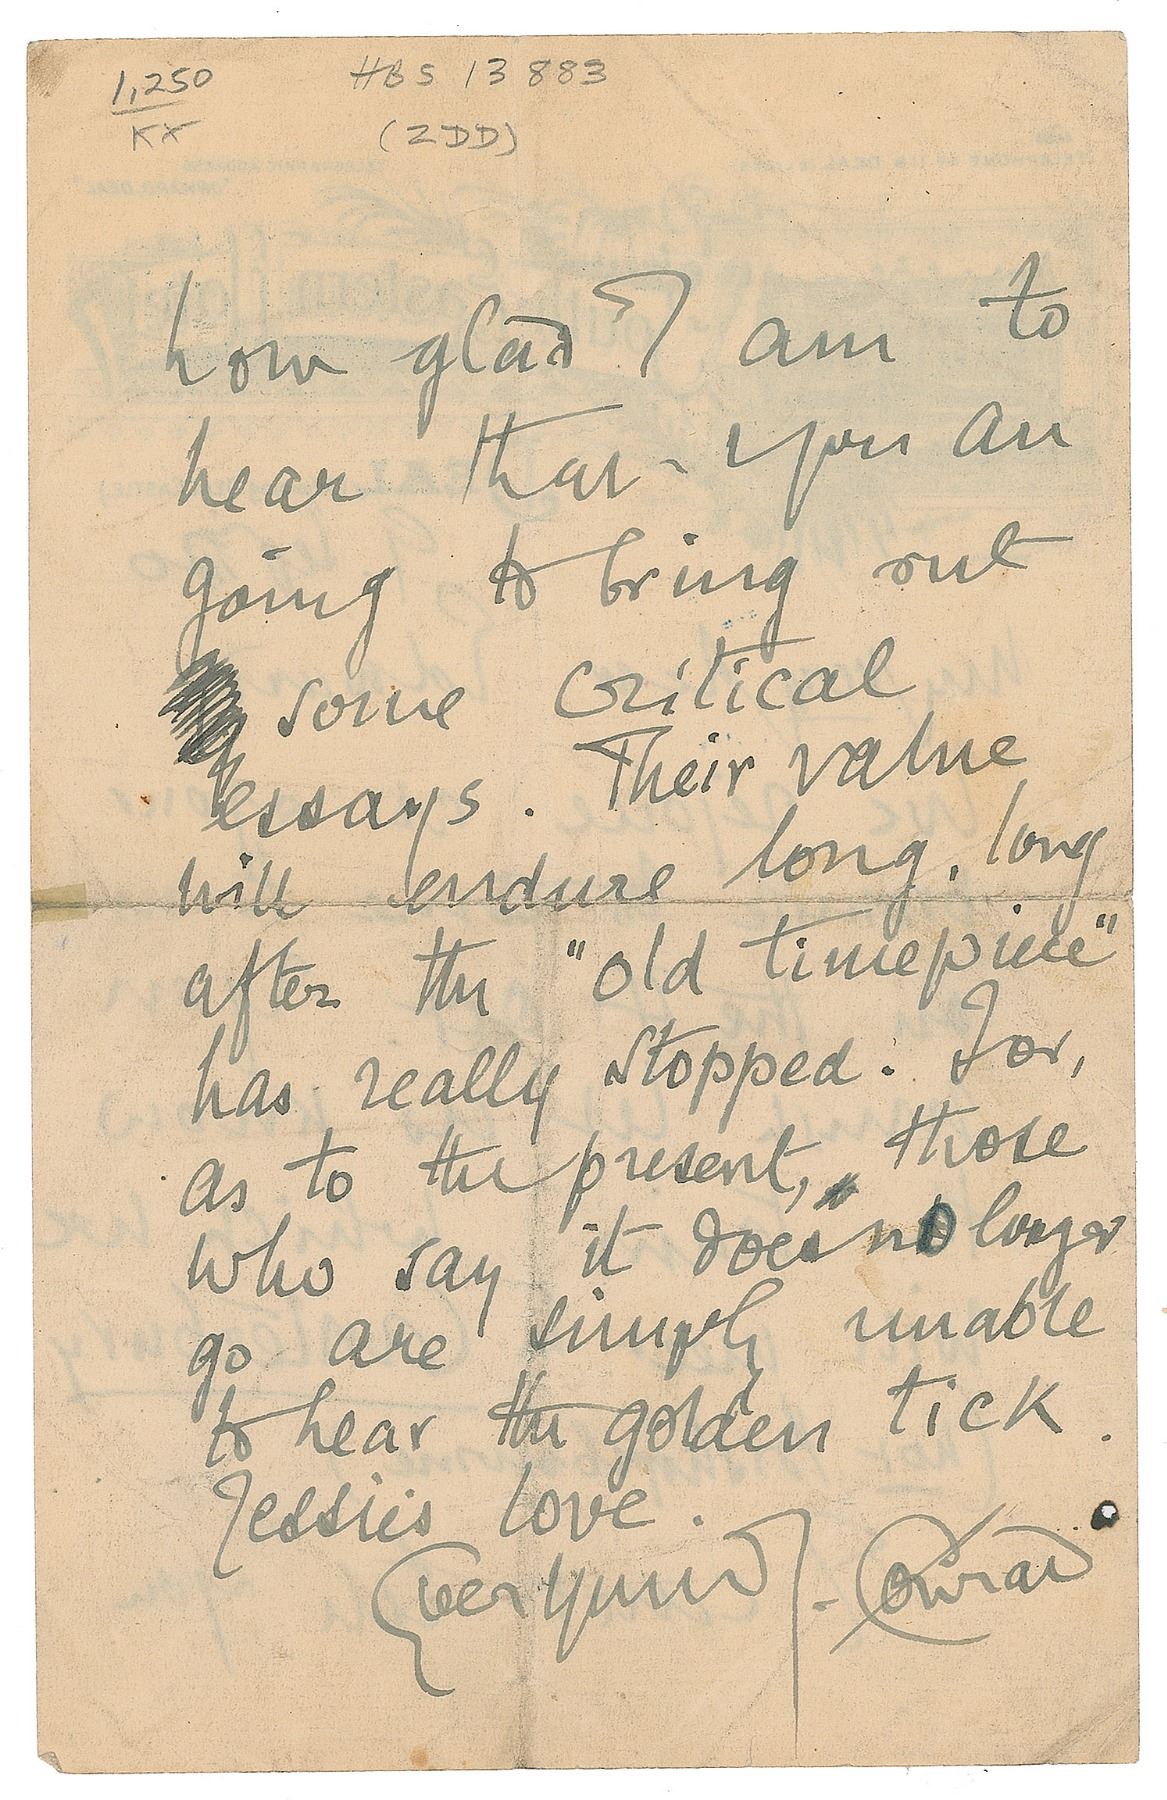 1,250
KX
HBS 13883
(ZDD)
how glad I am to
hear that you are
going to bring out
some critical
essays. Their value
will endure long, long
after the "old timepiece"
has really stopped. For,
as to the present, those
who say it does no longer
go are simply unable
to hear the golden tick.
Jessie's love.
Ever yours J. Conrad